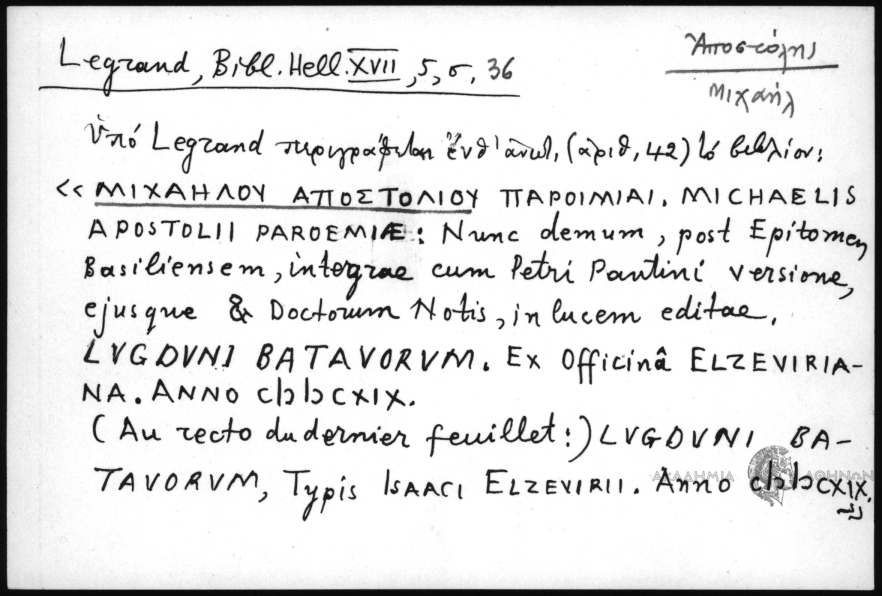 Legrand, Bibl. Hell. XVII, 5, σ. 36
Ἀποστόλης
Μιχαήλ
Ὑπό Legrand περιγράφεται ἔνθ' ἀνωτ. (ἀριθ. 42) τό βιβλίον:
<< ΜΙΧΑΗΛΟΥ ΑΠΟΣΤΟΛΙΟΥ ΠΑΡΟΙΜΙΑΙ. MICHAELIS
APOSTOLII PAROEMIÆ: Nunc demum, post Epitomen
Basiliensem, integrae cum Petri Pantini versione,
ejusque & Doctorum Notis, in lucem editae.
LVGDVNI BATAVORVM. Ex Officinâ ELZEVIRIA-
NA. ANNO cIɔ Iɔ CXIX.
(Au recto du dernier feuillet:) LVGDVNI BA-
TAVORVM, Typis ISAACI ELZEVIRII. Anno cIɔ Iɔ CXIX. >>
ΑΚΑΔΗΜΙΑ ΑΘΗΝΩΝ